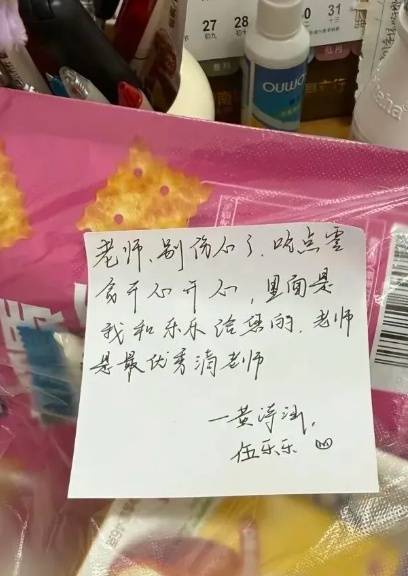 27 28 30 31
初九 初十 十三
OMNO
老师、别伤心了、吃点零
食开心开心，里面是
我和乐乐给您的、老师
是最优秀滴老师
一黄
伍乐乐